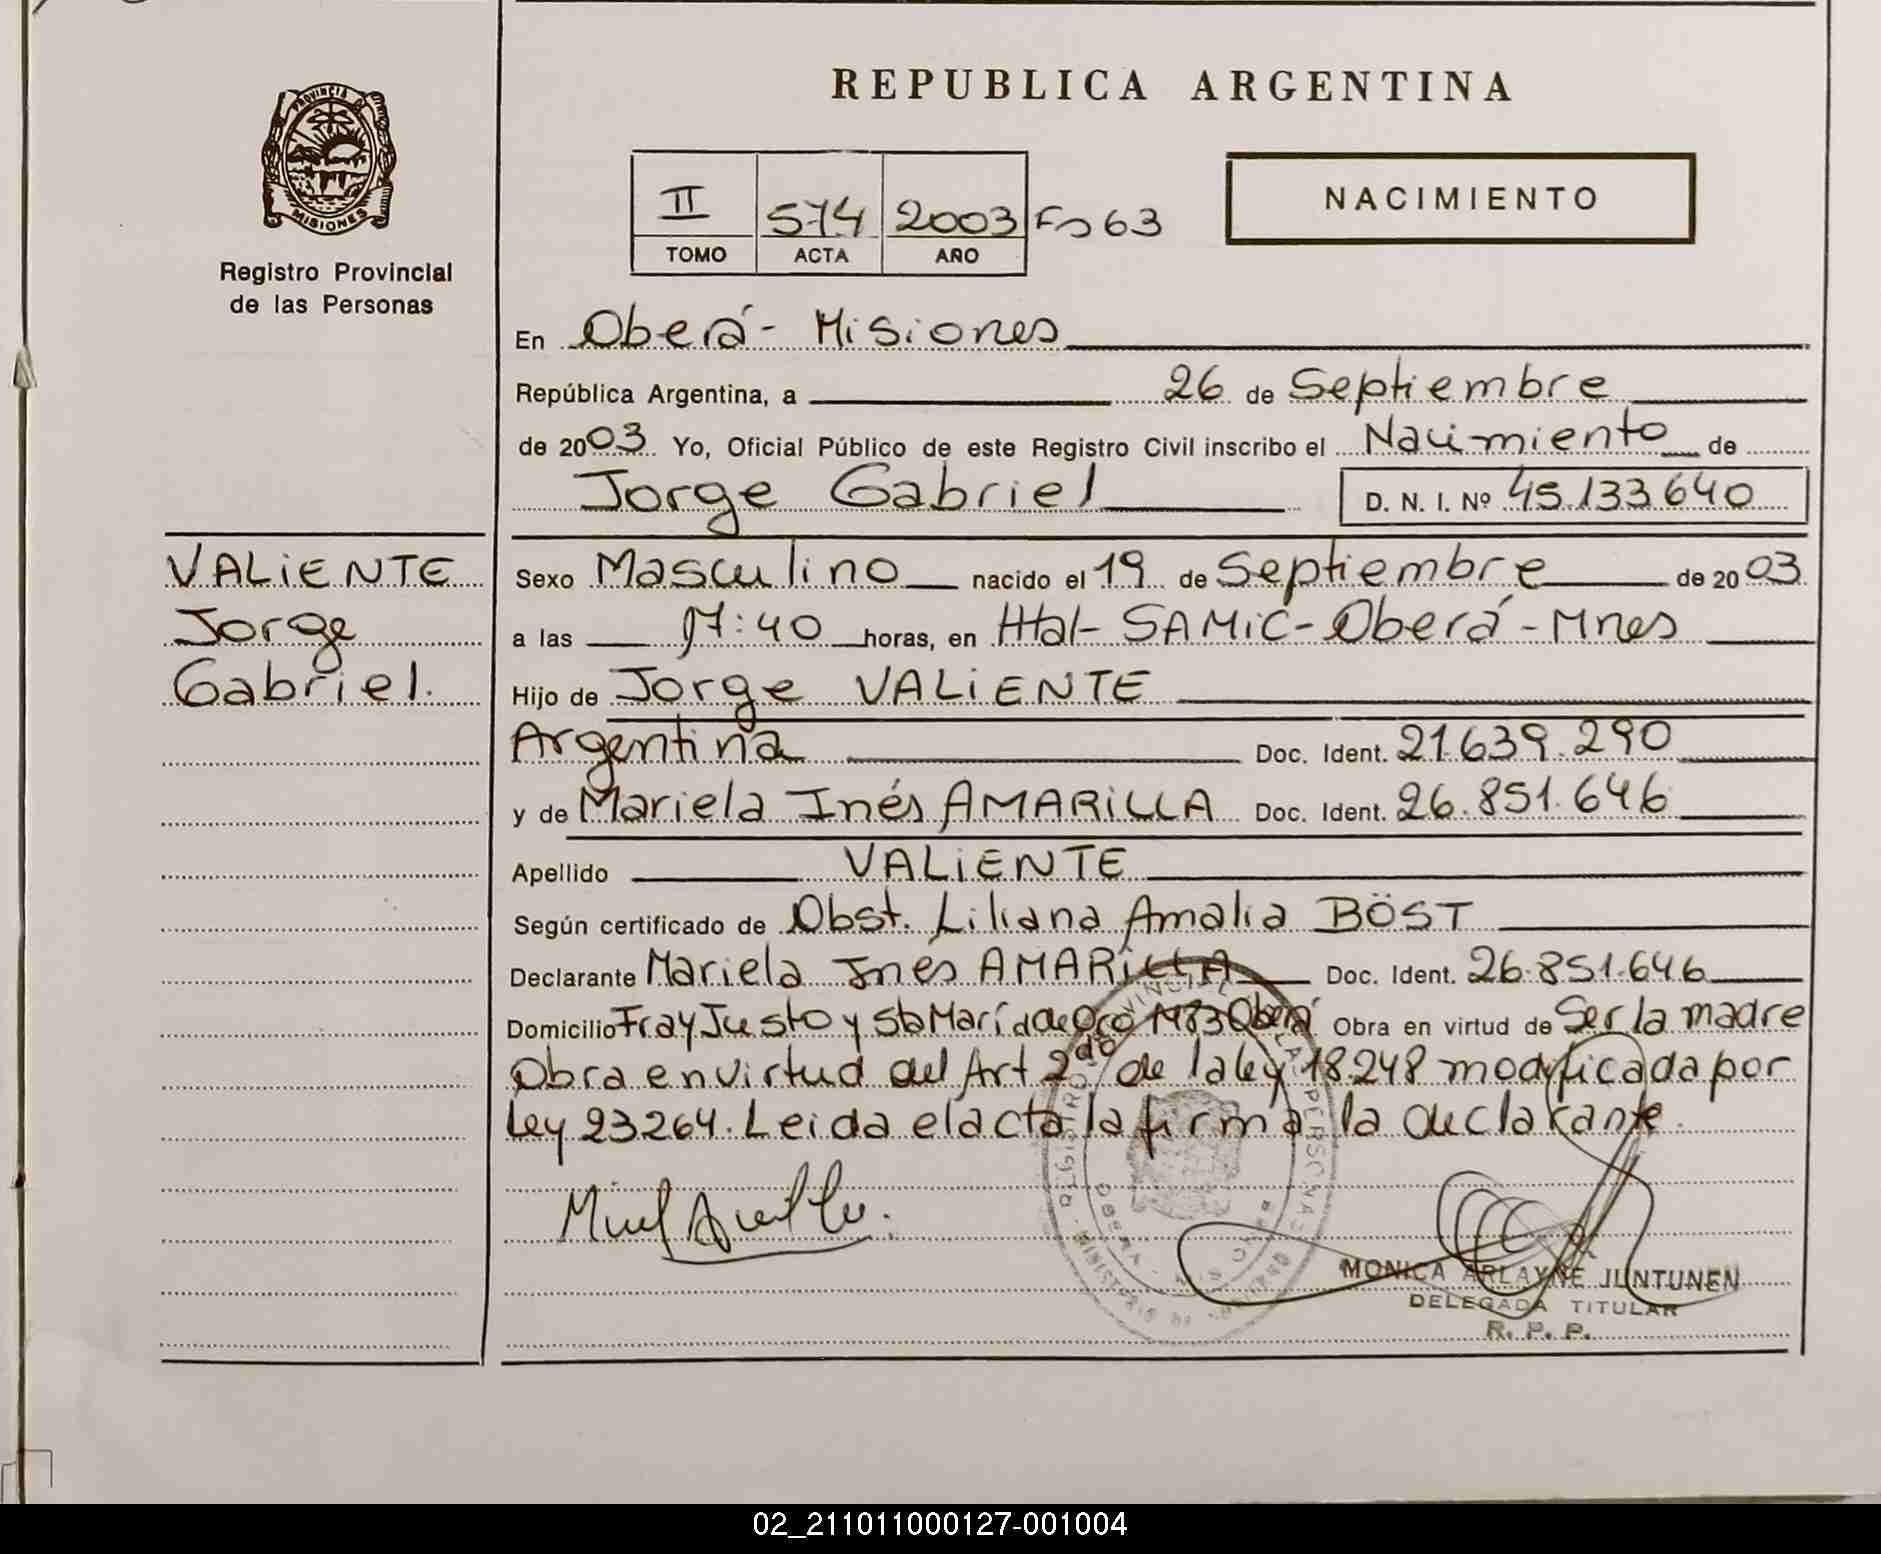 REPUBLICA ARGENTINA
PROVINCIA DE
MISIONES
Registro Provincial
de las Personas
II 574 2003 Fº 63
TOMO ACTA AÑO
NACIMIENTO
En Oberá - Misiones
República Argentina, a 26 de Septiembre
de 2003 Yo, Oficial Público de este Registro Civil inscribo el Nacimiento de
Jorge Gabriel D. N. I. Nº 45.133.640
VALiENTE
Jorge
Gabriel.
Sexo Masculino nacido el 19 de Septiembre de 2003
a las 17:40 horas, en Htal - SAMiC - Oberá - Mnes
Hijo de Jorge VALiENTE
Argentina Doc. Ident. 21.639.290
y de Mariela Inés AMARiLLA Doc. Ident. 26.851.646
Apellido VALiENTE
Según certificado de Obst. Liliana Amalia BÖST
Declarante Mariela Ines AMARiLLA Doc. Ident. 26.851.646
Domicilio Fray Justo y Sta María de Oro 1983 Oberá Obra en virtud de Ser la madre
Obra en virtud del Art 2do de la ley 18.248 modificada por
Ley 23264. Leida el acta la firma la declarante.
MONICA ARLAYNE JUNTUNEN
DELEGADA TITULAR
R. P. P.
02_211011000127-001004